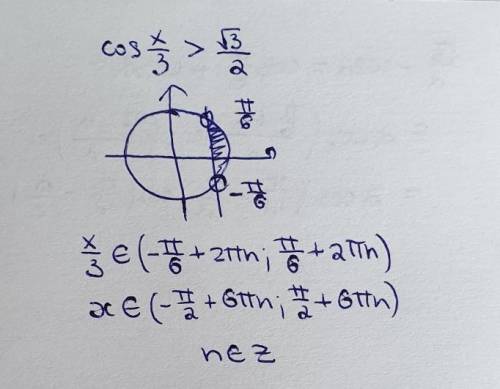 cos x/3 > √3/2
π/6
-π/6
x/3 ∈ (-π/6 + 2πn; π/6 + 2πn)
x ∈ (-π/2 + 6πn; π/2 + 6πn)
n ∈ Z